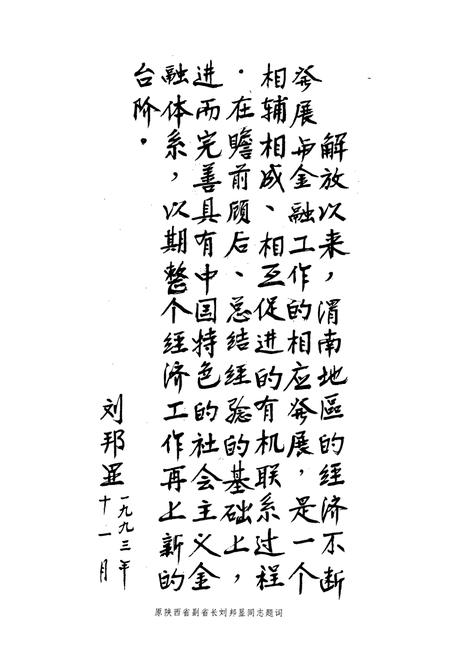 解放以来，渭南地區的经济不断
发展与金融工作的相应发展，是一个
相辅相成、相互促进的有机联系过程
。在瞻前顾后、总结经验的基础上，
进而完善具有中国特色的社会主义金
融体系，以期整个经济工作再上新的
台阶。
刘邦显
一九九三年
十一月
原陕西省副省长刘邦显同志题词